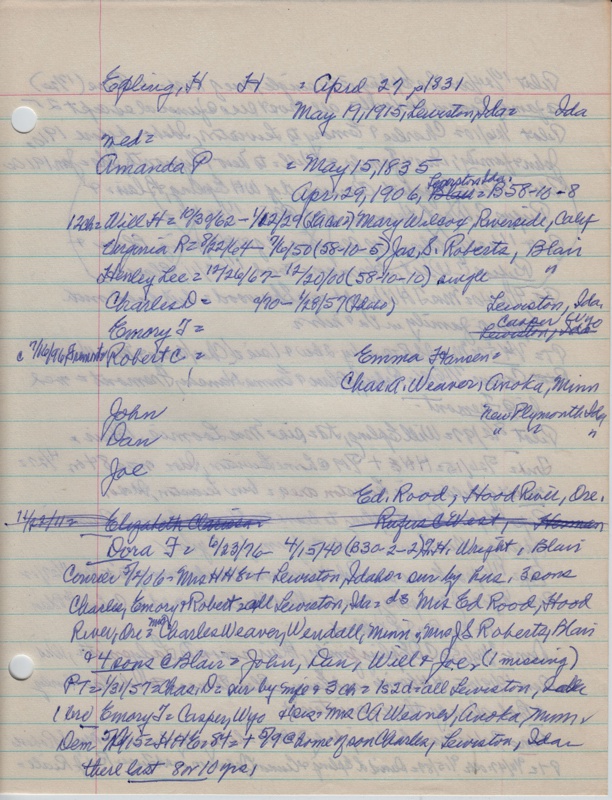 Epling, H H = April 27, 1831
May 19, 1915, Lewiston, Ida = Ida
med=
Amanda P = May 15, 1835
Lewiston Ida.
Apr. 29, 1906, Blair = B58-10-8
12ch = Will H = 10/30/62 - 1/22/29 (Idaho) Mary Wilcox, Riverside, Calif
Virginia R = 8/22/64 - 7/6/50 (58-10-5) Jas. S. Roberts, Blair
Henley Lee = 12/26/67 - 12/20/00 (58-10-10) single "
Charles D = 9/70 - 1/28/57 (Idaho) Lewiston, Ida.
Casper, Wyo
Emory F = Lewiston, Ida
c 7/16/96 Fremont = Robert C = Emma Hansen =
Chas A. Weaver, Anoka, Minn
John New Plymouth Ida
Dan " " "
Joe
Ed. Rood, Hood River, Ore.
Elizabeth Rufus C West, Herman
Dora F = 6/23/76 - 4/15/40 (B30-2-2) J.H. Wright, Blair
Courier 5/2/06 = Mrs H H E + Lewiston, Idaho = sur by hus, 3 sons
Charles, Emory + Robert = all Lewiston, Ida = ds Mrs Ed Rood, Hood
River, Ore = Mrs Charles Weaver, Wendall, Minn, Mrs J.S. Roberts, Blair
+ 4 sons C Blair = John, Dan, Will + Joe, (1 missing)
PT = 1/31/57 = Chas. D = sur by wife + 3 ch = 1s 2d = all Lewiston,
1 bro Emory F = Casper, Wyo + sis = Mrs CA Weaver, Anoka, Minn
Dem 5/19/15 = H H E = 84 = + 5/9 @ home of son Charles, Lewiston, Ida =
there last 8 or 10 yrs,